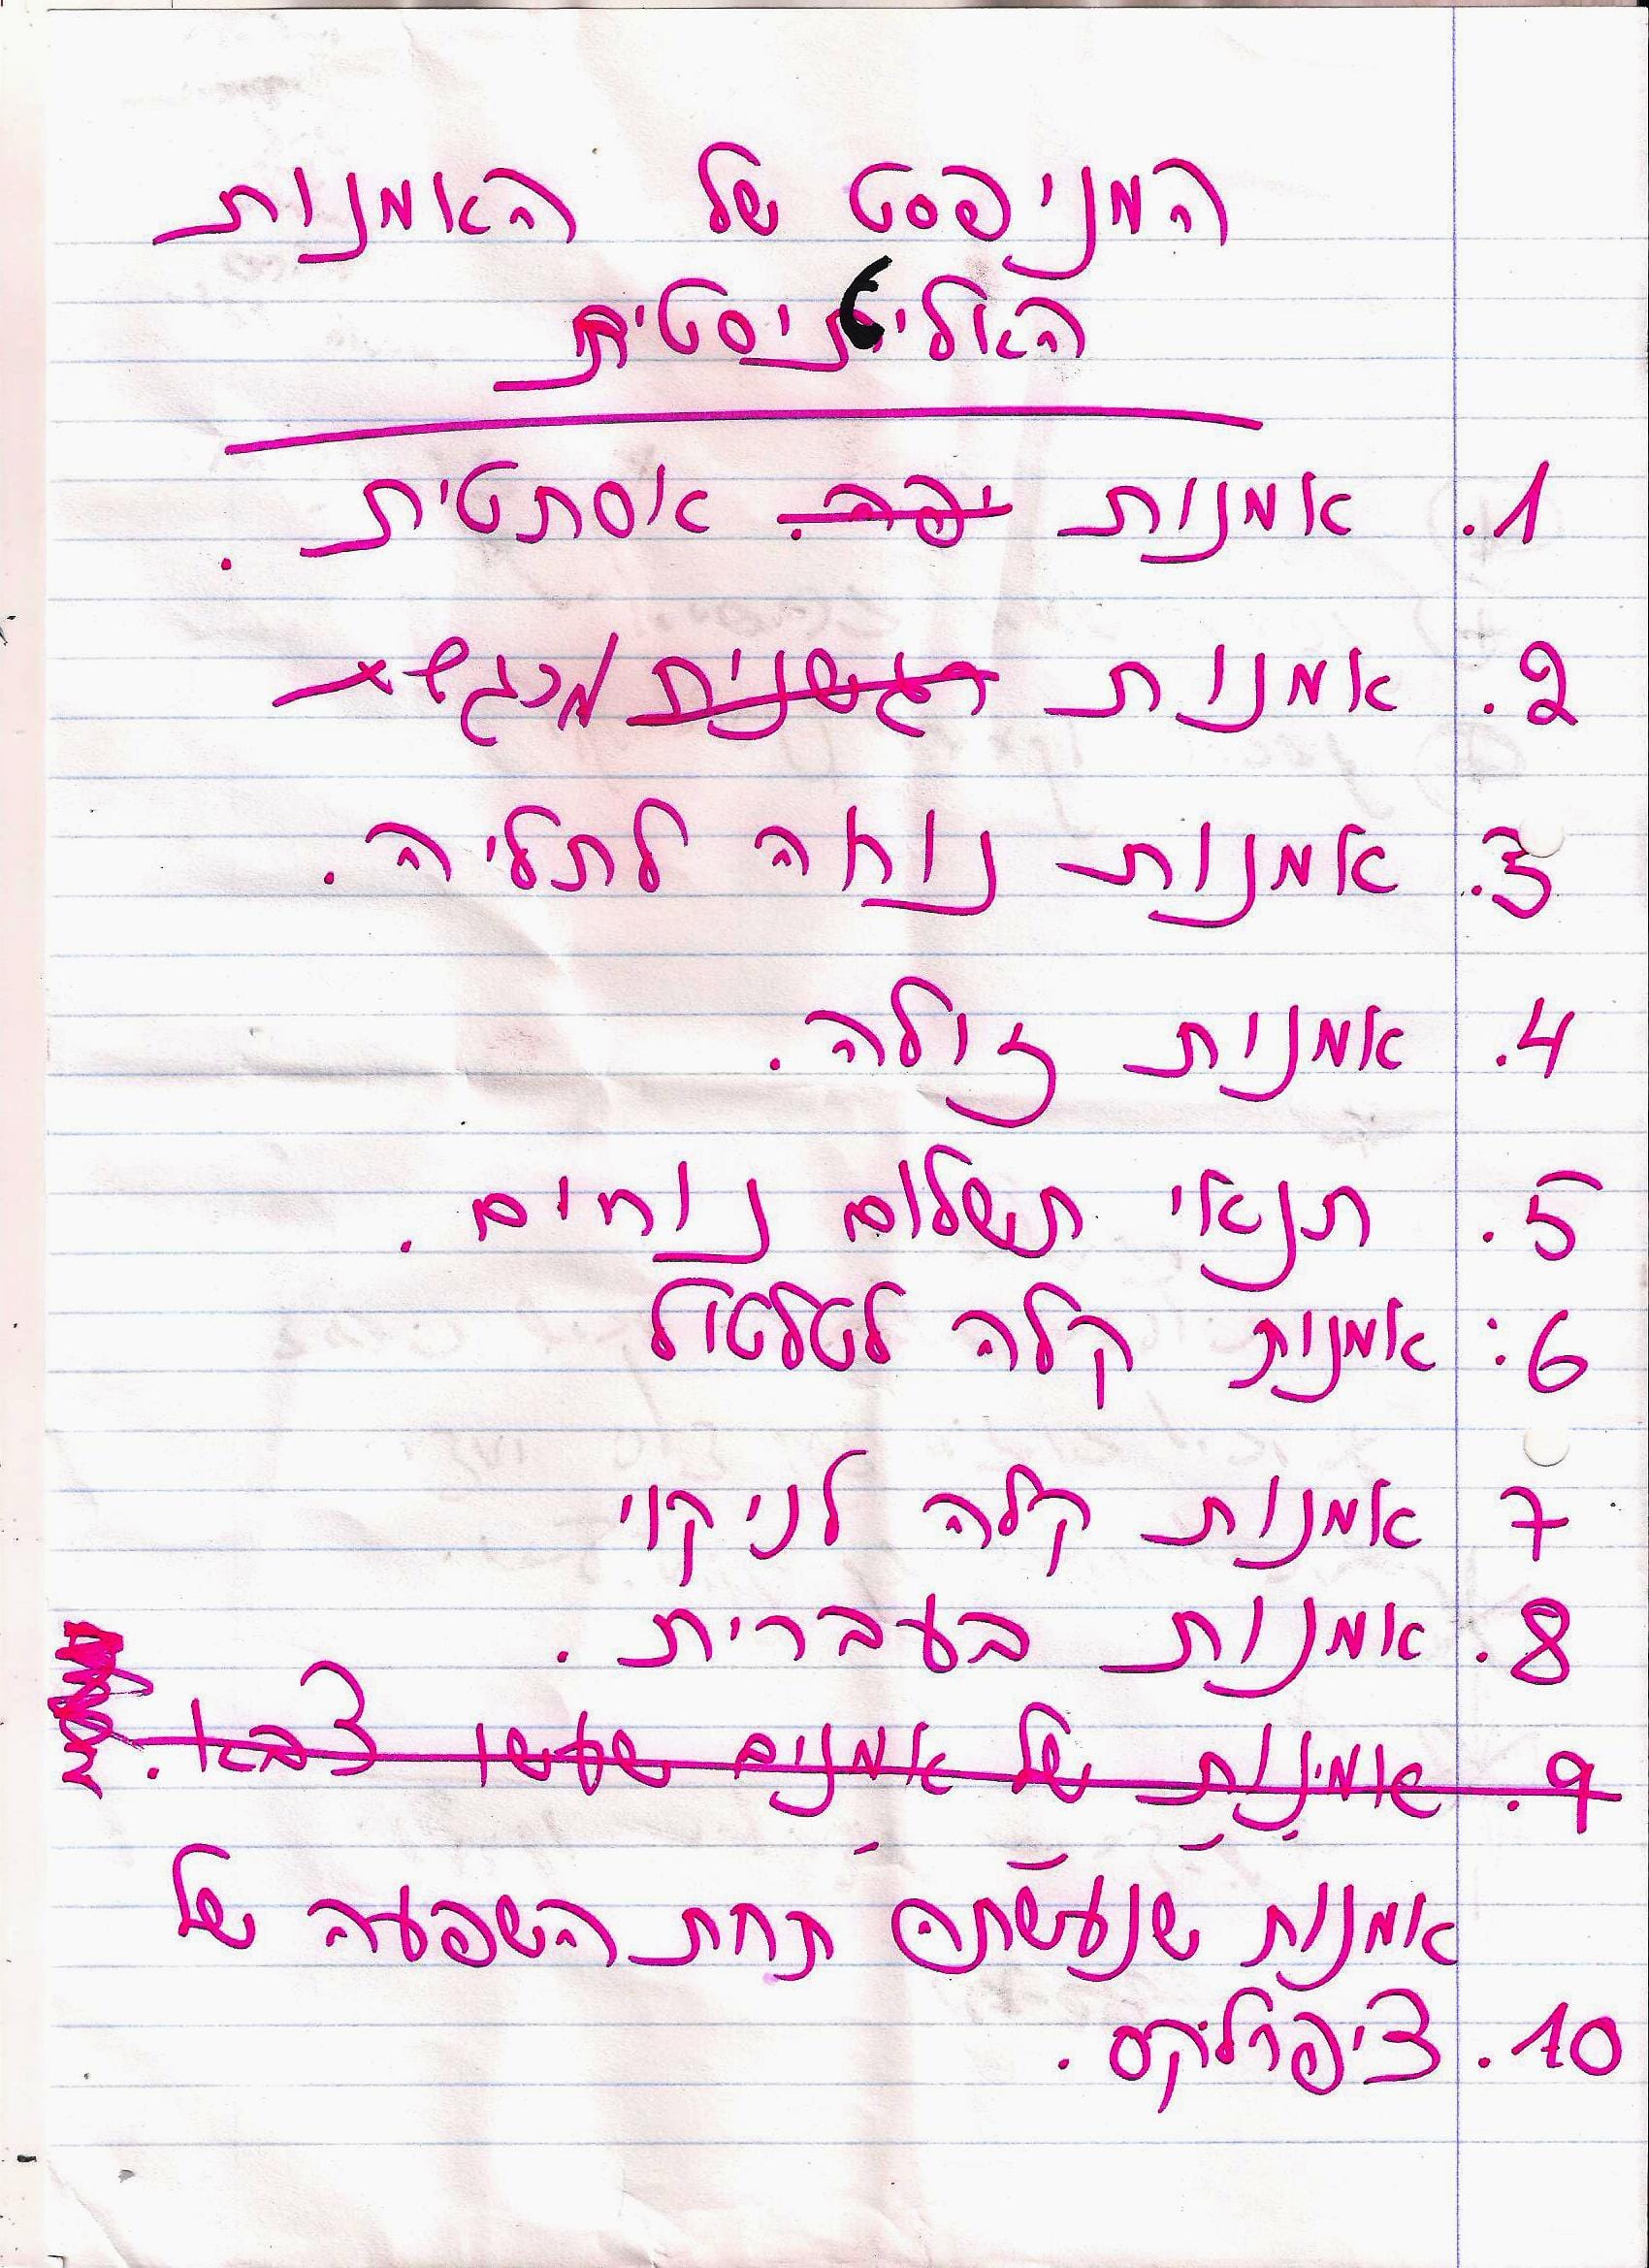 המניפסט של האמנות
האליטיסטית
1. אמנות יפה. אסתטית.
2. אמנות רגשנית מרגשת
3. אמנות נוחה לתליה.
4. אמנות זולה.
5. תנאי תשלום נוחים.
6: אמנות קלה לטלטול
7 אמנות קלה לניקוי
8. אמנות בעברית.
9. אמינות של אמנים שעשו צבא.
אמנות שנעשתה תחת השפעה של
10. ציפרלקס.